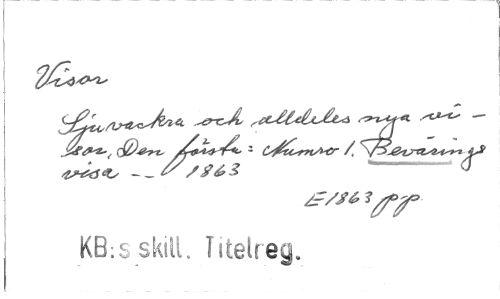 Visor
Sju vackra och alldeles nya vi-
sor, Den första: Numro 1. Bevärings
visa -- 1863
E1863 p.p.
KB:s skill. Titelreg.